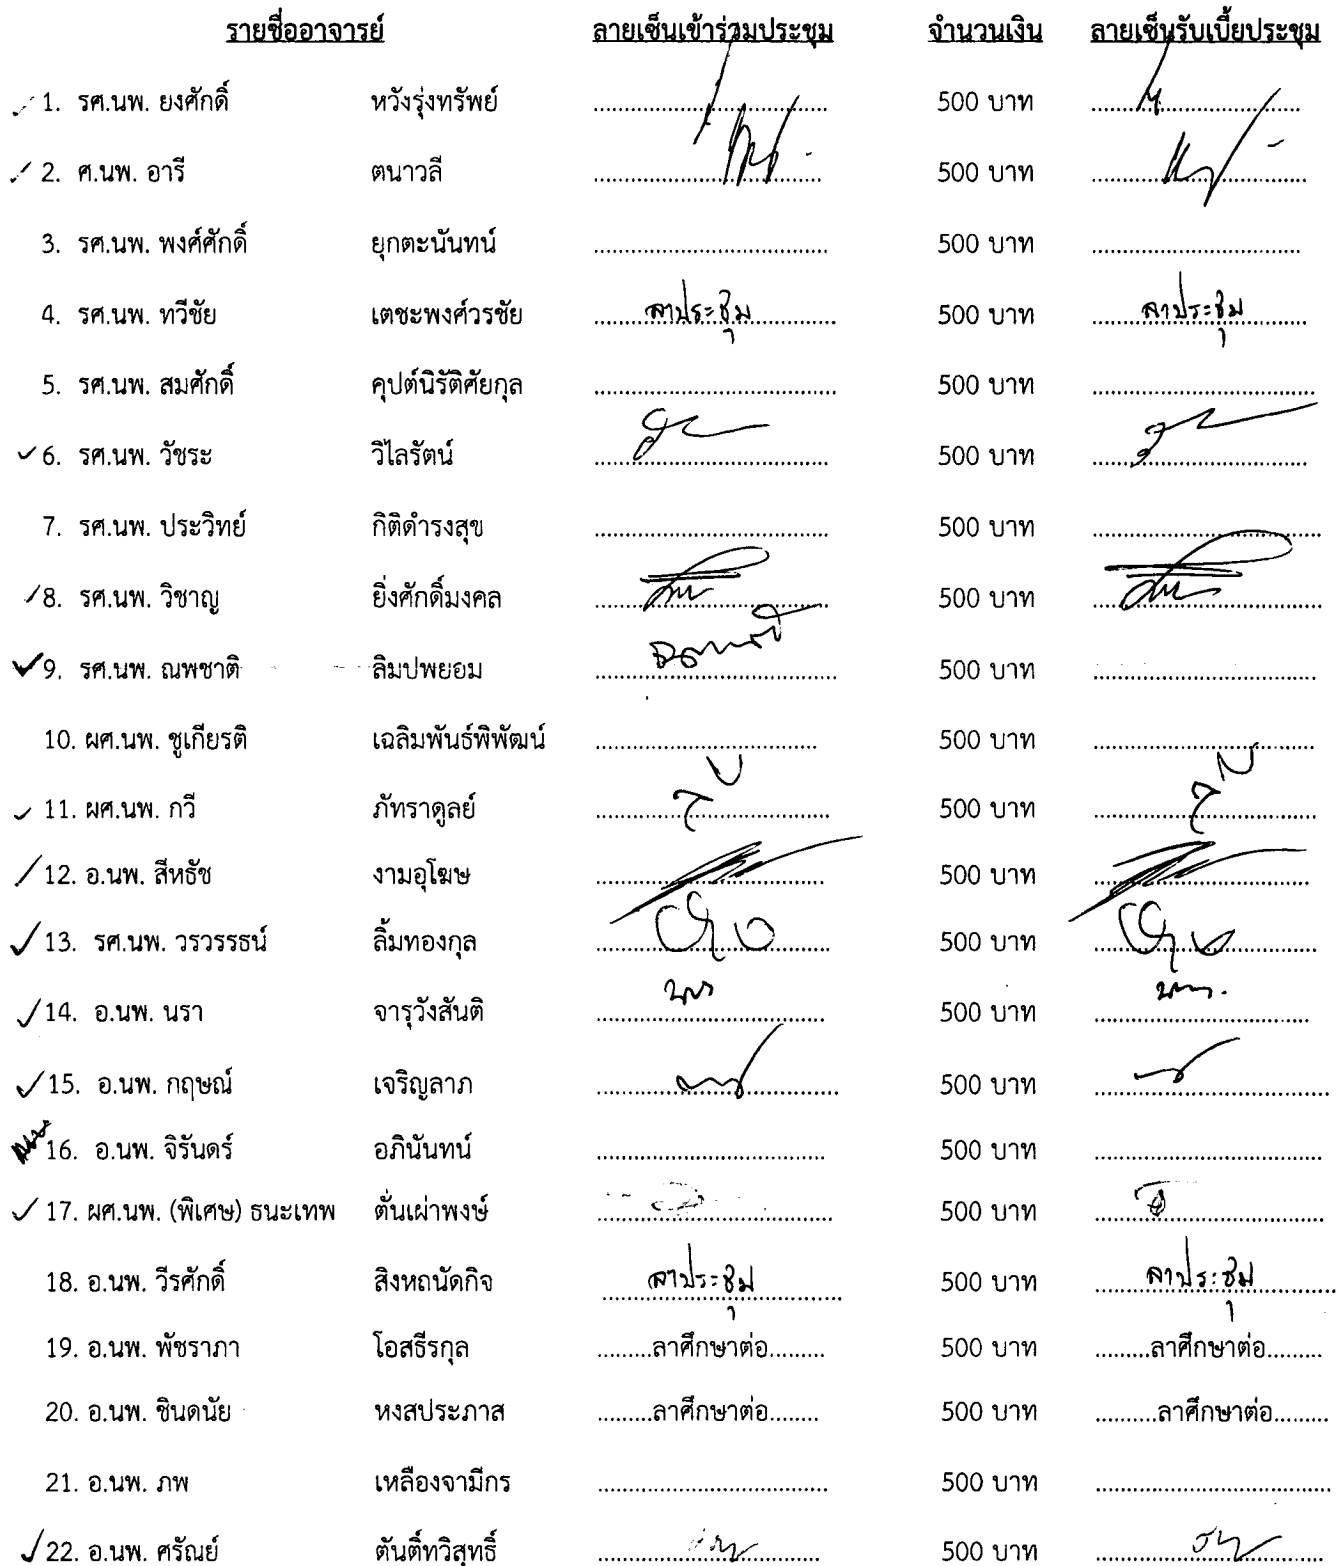 รายชื่ออาจารย์ ลายเซ็นเข้าร่วมประชุม จำนวนเงิน ลายเซ็นรับเบี้ยประชุม
1. รศ.นพ. ยงศักดิ์ หวังรุ่งทรัพย์ 500 บาท
2. ศ.นพ. อารี ตนาวลี 500 บาท
3. รศ.นพ. พงศ์ศักดิ์ ยุกตะนันทน์ 500 บาท
4. รศ.นพ. ทวีชัย เตชะพงศ์วรชัย ลาประชุม 500 บาท ลาประชุม
5. รศ.นพ. สมศักดิ์ คุปต์นิรัติศัยกุล 500 บาท
6. รศ.นพ. วัชระ วิไลรัตน์ 500 บาท
7. รศ.นพ. ประวิทย์ กิติดำรงสุข 500 บาท
8. รศ.นพ. วิชาญ ยิ่งศักดิ์มงคล 500 บาท
9. รศ.นพ. ณพชาติ ลิมปพยอม 500 บาท
10. ผศ.นพ. ชูเกียรติ เฉลิมพันธ์พิพัฒน์ 500 บาท
11. ผศ.นพ. กวี ภัทราดูลย์ 500 บาท
12. อ.นพ. สีหธัช งามอุโฆษ 500 บาท
13. รศ.นพ. วรวรรธน์ ลิ้มทองกุล 500 บาท
14. อ.นพ. นรา จารุวังสันติ นรา 500 บาท
15. อ.นพ. กฤษณ์ เจริญลาภ 500 บาท
16. อ.นพ. จิรันดร์ อภินันทน์ 500 บาท
17. ผศ.นพ. (พิเศษ) ธนะเทพ ตั่นเผ่าพงษ์ 500 บาท
18. อ.นพ. วีรศักดิ์ สิงหถนัดกิจ ลาประชุม 500 บาท ลาประชุม
19. อ.นพ. พัชราภา โอสธีรกุล .........ลาศึกษาต่อ......... 500 บาท .........ลาศึกษาต่อ.........
20. อ.นพ. ชินดนัย หงสประภาส .........ลาศึกษาต่อ........ 500 บาท ..........ลาศึกษาต่อ.........
21. อ.นพ. ภพ เหลืองจามีกร 500 บาท
22. อ.นพ. ศรัณย์ ตันติ์ทวิสุทธิ์ 500 บาท